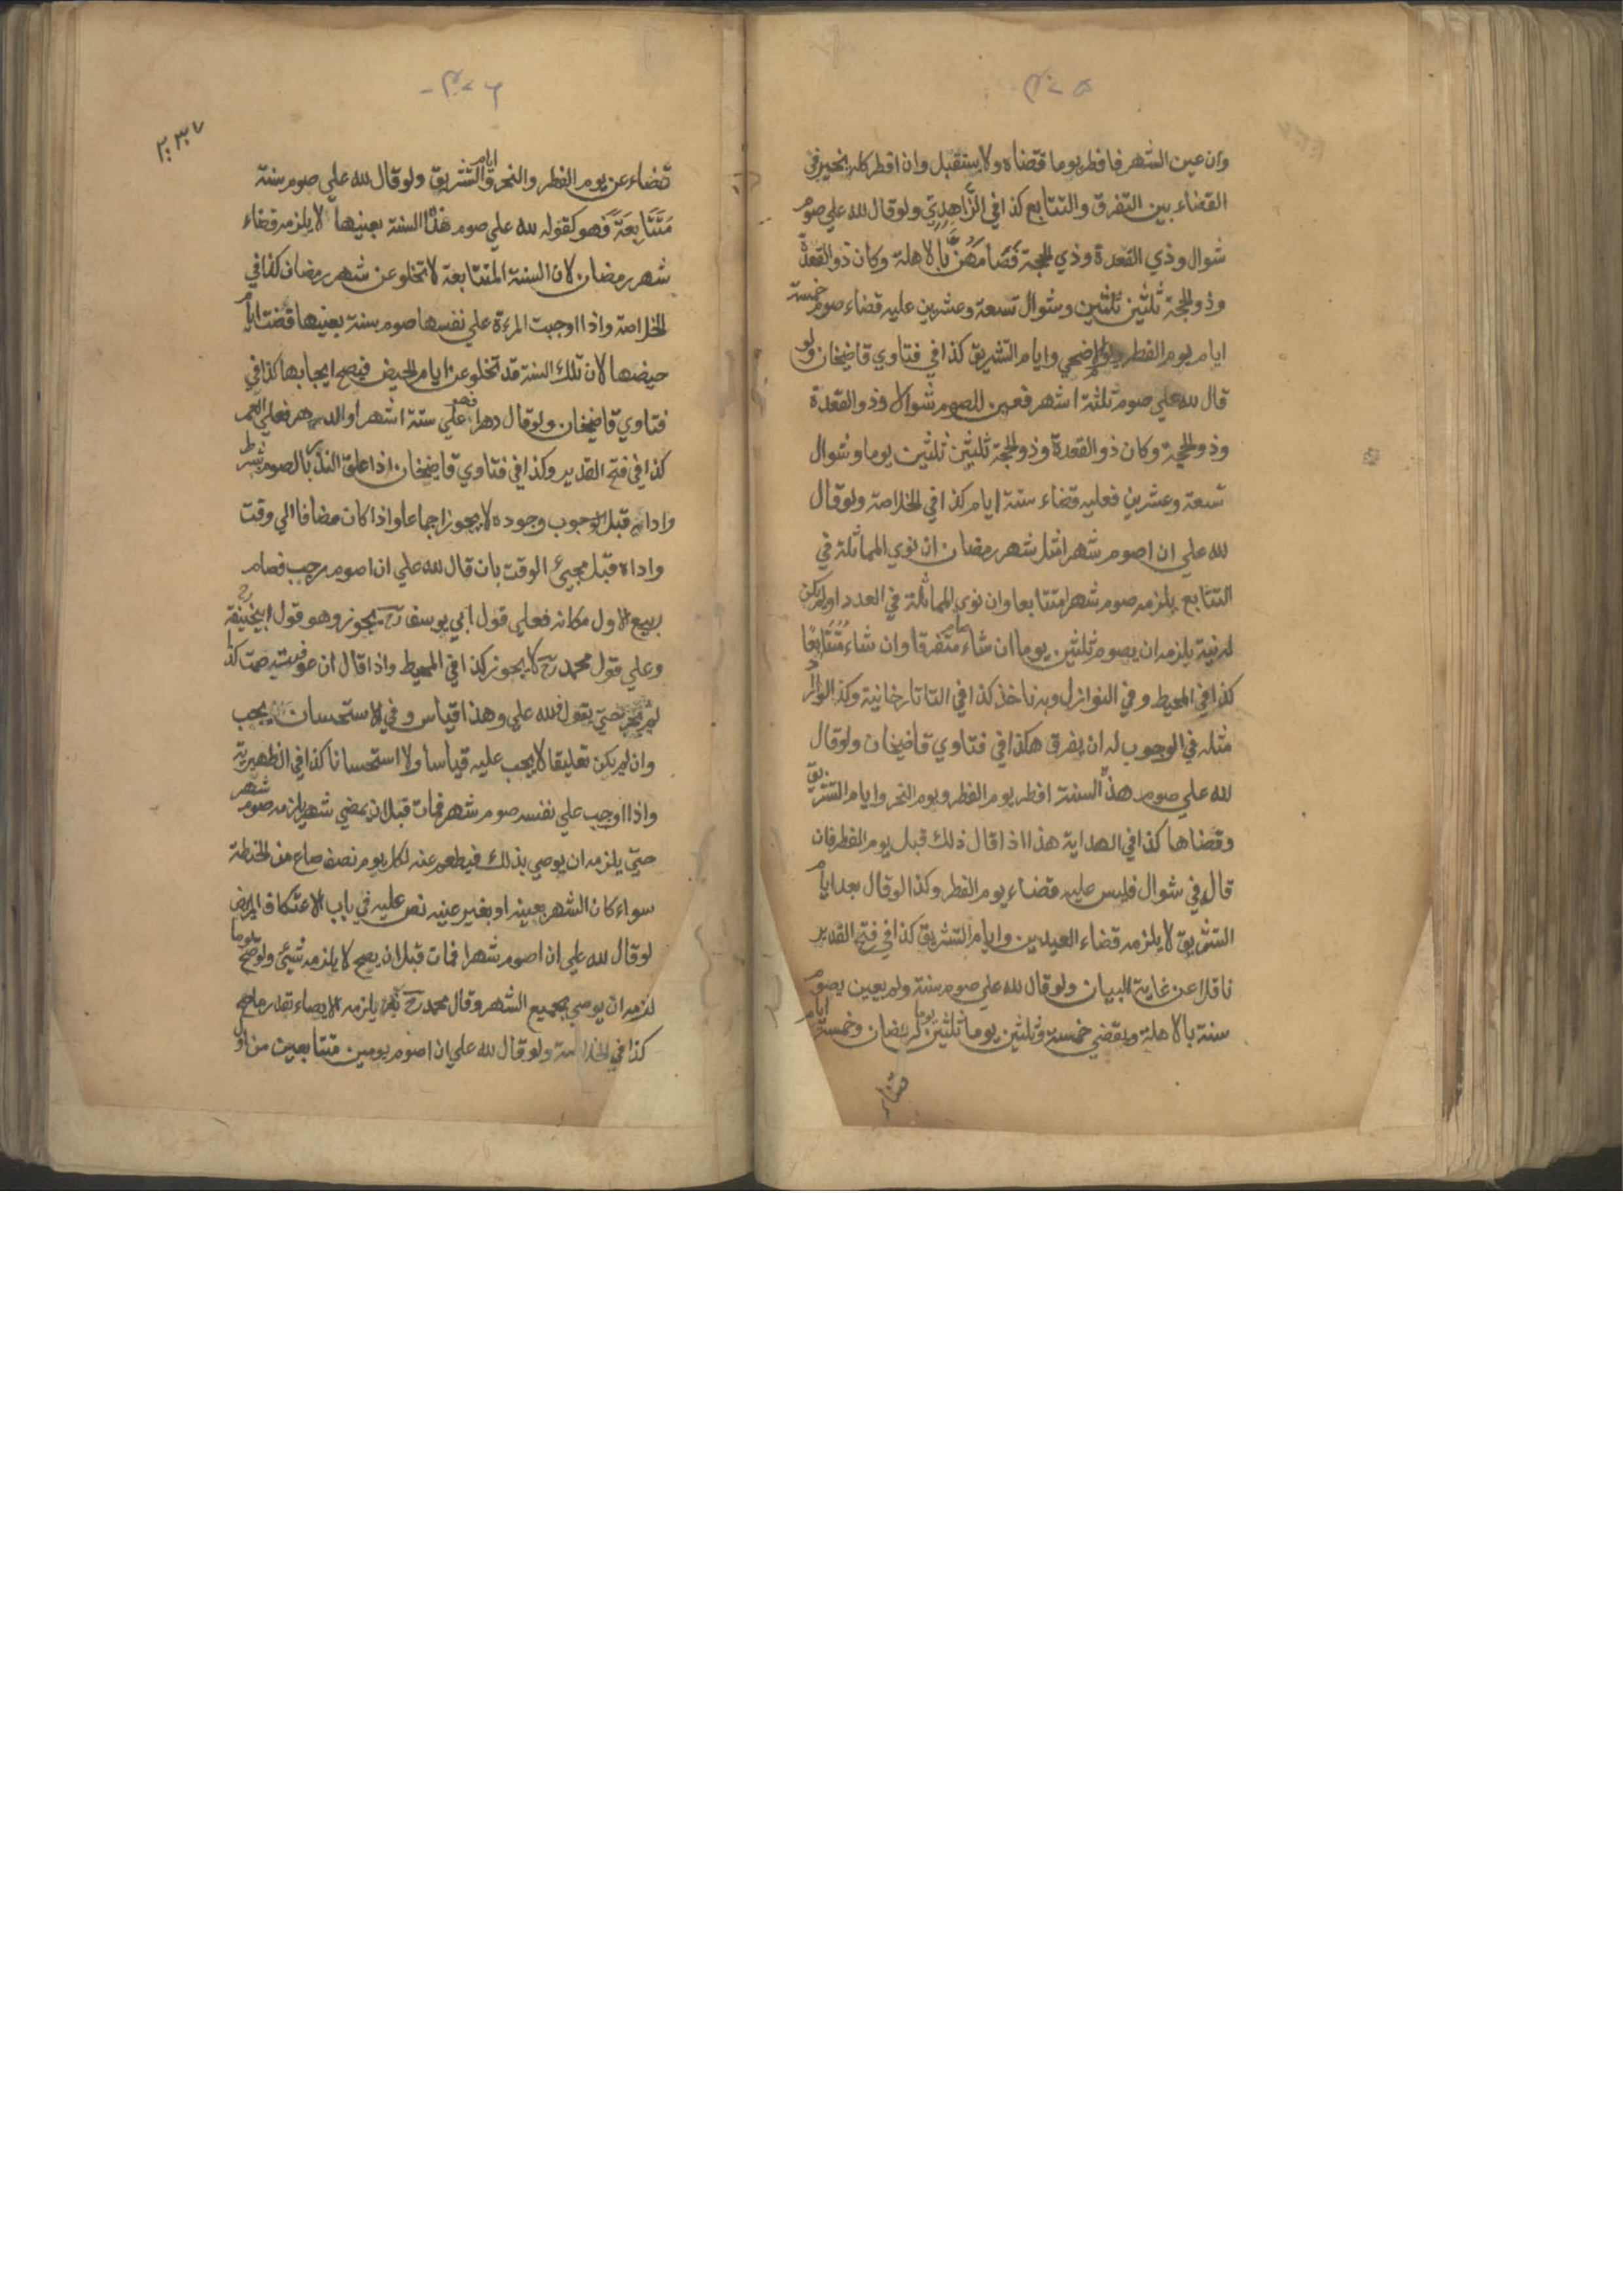 ۴۰۵
وان عين الشهر فافطر يوما قضاه ولا يستقبل وان افطر كله يخير في
القضاء بين التفرق والتتابع كذا في الزاهدي ولو قال لله علي صوم
شوال وذي القعدة وذي الحجة فصامهن بالاهلة وكان ذو القعدة
وذو الحجة ثلثين ثلثين وشوال تسعة وعشرين عليه قضاء صوم خمسة
ايام يوم الفطر ويوم الاضحي وايام التشريق كذا في فتاوي قاضيخان ولو
قال لله علي صوم ثلثة اشهر فعين للصوم شوالا وذو القعدة
وذو الحجة وكان ذو القعدة وذو الحجة ثلثين ثلثين يوما وشوال
تسعة وعشرين فعليه قضاء ستة ايام كذا في الخلاصة ولو قال
لله علي ان اصوم شهرا مثل شهر رمضان ان نوي المماثلة في
التتابع يلزمه صوم شهر متتابعا وان نوي المماثلة في العدد او لم يكن
له نية يلزمه ان يصوم ثلثين يوما ان شاء صام متفرقا وان شاء متتابعا
كذا في المحيط وفي النوازل وبه ناخذ كذا في التاتارخانية وكذا لو اراد
مثله في الوجوب له ان يفرق هكذا في فتاوي قاضيخان ولو قال
لله علي صوم هذه السنة افطر يوم الفطر ويوم النحر وايام التشريق
وقضاها كذا في الهداية هذا اذا قال ذلك قبل يوم الفطر فان
قال في شوال فليس عليه قضاء يوم الفطر وكذا لو قال بعد ايام
التشريق لا يلزمه قضاء العيدين وايام التشريق كذا في فتح القدير
ناقلا عن غاية البيان ولو قال لله علي صوم سنة ولم يعين يصوم
سنة بالاهلة ويقضي خمسة وثلثين يوما ثلثين يوما لرمضان وخمسة ايام
قضاء
۴۰۶
۲۰۳۷
قضاء عن يوم الفطر والنحر و ايام التشريق ولو قال لله علي صوم سنة
متتابعة فهو كقوله لله علي صوم هذه السنة بعينها لا يلزمه قضاء
شهر رمضان لان السنة المتتابعة لا تخلو عن شهر رمضان كذا في
الخلاصة واذا اوجبت المرءة علي نفسها صوم سنة بعينها قضت ايام
حيضها لان تلك السنة قد تخلو عن ايام الحيض فيصح ايجابها كذا في
فتاوي قاضيخان ولو قال دهرا فهو علي ستة اشهر او الدهر فعلي العمر
كذا في فتح القدير وكذا في فتاوي قاضيخان اذا علق النذر بالصوم بشرط
واداه قبل الوجوب وجوده لا يجوز اجماعا واذا كان مضافا الي وقت
واداه قبل مجيئ الوقت بان قال لله علي ان اصوم رجب فصام
ربيع الاول مكانه فعلي قول ابي يوسف رح يجوز وهو قول ابيحنيفة رح
وعلي قول محمد رح لا يجوز كذا في المحيط واذا قال ان عوفيت صمت كذا
لم يجب حتي يقول لله علي وهذا قياس وفي الاستحسان يجب
وان لم يكن تعليقا لا يجب عليه قياسا ولا استحسانا كذا في الظهيرية
واذا اوجب علي نفسه صوم شهر فمات قبل ان يمضي شهر يلزمه صوم شهر
حتي يلزمه ان يوصي بذلك فيطعم عنه لكل يوم نصف صاع من الحنطة
سواء كان الشهر بعينه او بغير عينه نص عليه في باب الاعتكاف المريض
لو قال لله علي ان اصوم شهرا فمات قبل ان يصح لا يلزمه شيئ ولو صح يوما
لزمه ان يوصي بجميع الشهر وقال محمد رح يلزمه الايصاء بقدر ما صح
كذا في الخلاصة ولو قال لله علي ان اصوم يومين متتابعين من اول